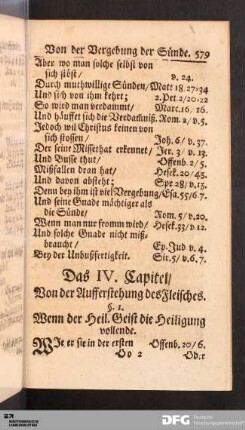 Von der Vergebung der Sünde. 579
Aber wo man solche selbst von
sich stöst/ v. 24.
Durch muthwillige Sünden/ Matt 18.27-34
Und sich von ihm kehrt; 2.Pet.2/20-22
So wird man verdammt/ Marc.16/16.
Und häufft sich die Verdamniß. Rom.2/v.5.
Jedoch wil Christus keinen von
sich stossen/ Joh.6/v.37.
Der seine Missethat erkennet/ Jer.3/v.13.
Und Busse thut/ Offenb.2/5.
Mißfallen dran hat/ Hesek.20/43.
Und davon absteht; Spr 28/v.13.
Denn bey ihm ist viel Vergebung/ Esa.55/6.7.
Und seine Gnade mächtiger als
die Sünde/ Rom.5/v.20.
Wenn man nur fromm wird/ Hesek.33/v.12.
Und solche Gnade nicht miß-
braucht/ Ep.Jud v.4.
Bey der Unbußfertigkeit. Sir.5/v.6.7.
Das IV. Capitel/
Von der Aufferstehung des Fleisches.
§. 1.
Wenn der Heil. Geist die Heiligung
vollende.
WIe er sie in der ersten Offenb.20/6.
Oo 2 Od.r
DFG Deutsche
Forschungsgemeinschaft